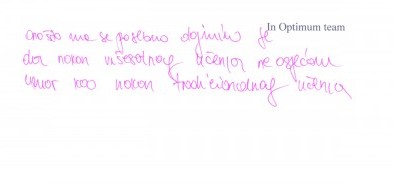 In Optimum team
ono što me se posebno dojmilo je
da nakon višesatnog učenja ne osjećam
umor kao nakon tradicionalnog učenja